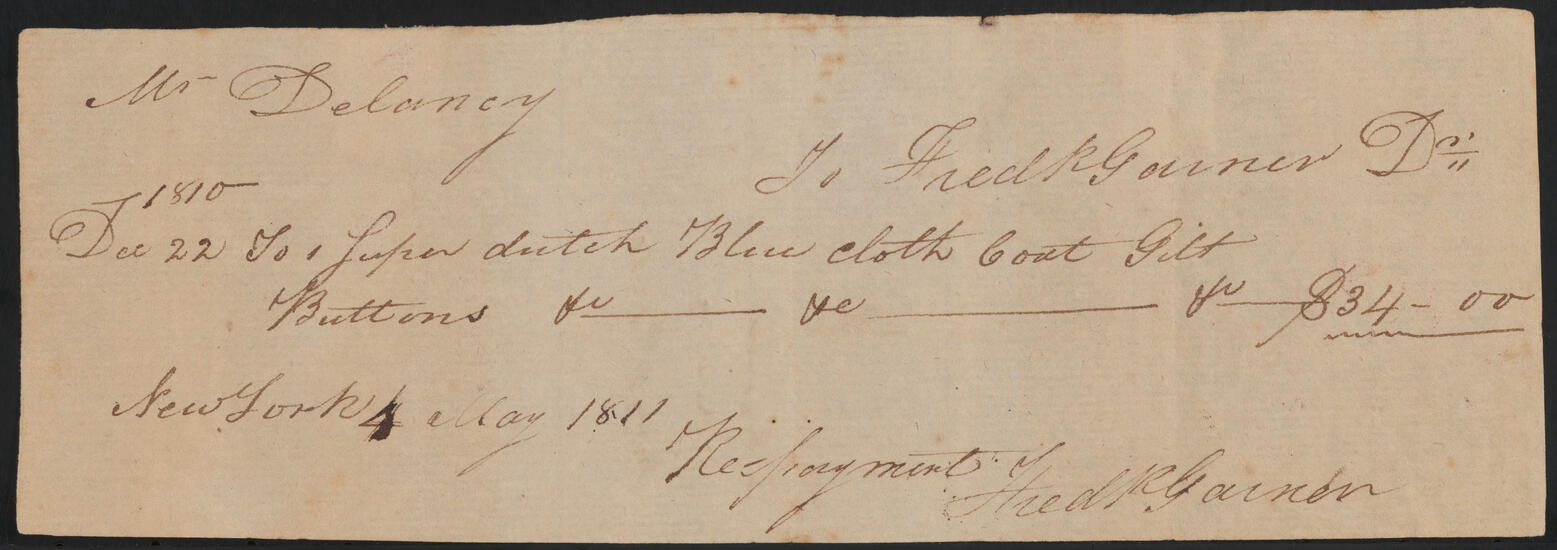 Mr Delancy
To Fredk Garner Dr
1810
Dec 22 To 1 Super dutch Blue cloth Coat Gilt
Buttons &c &c &c $34-00
New York 4 May 1811
Recpayment Fredk Garner